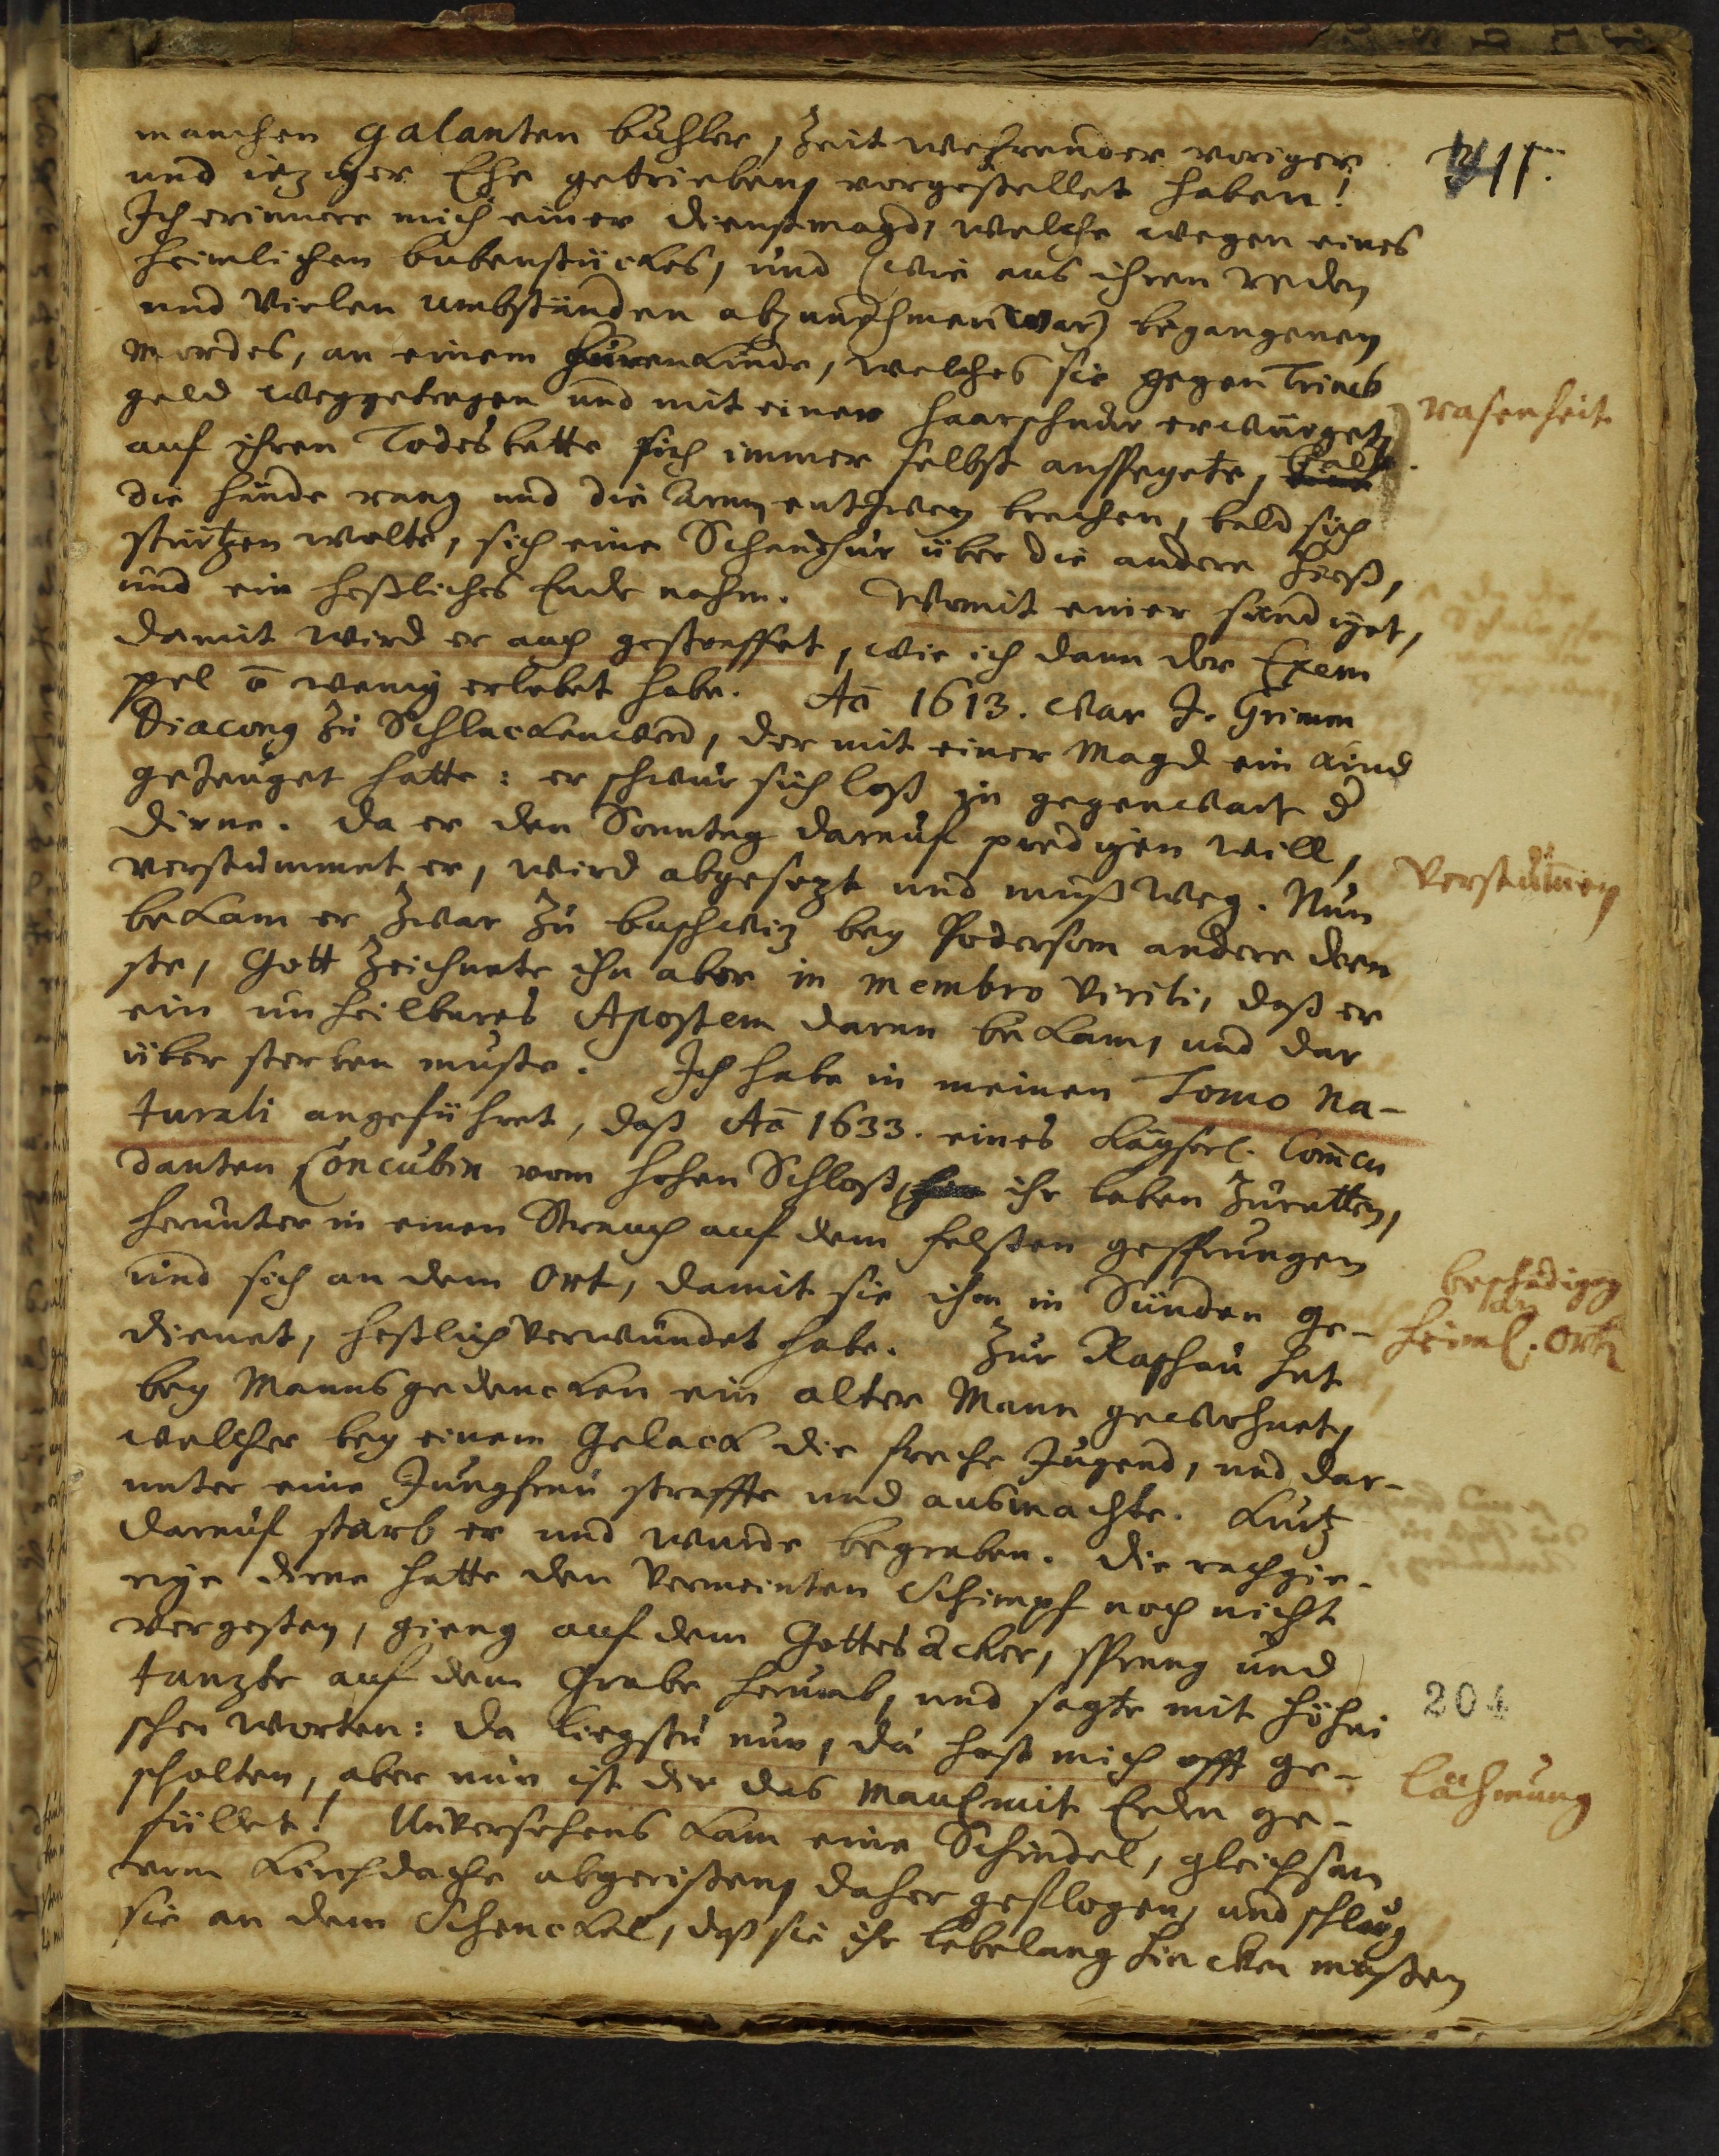 411.
manchen galanten buhler, Zeit wehrender voriger
und iezger Ehe getrieben, vorgestellet haben!
Ich erinnere mich einer dienstmagd, welche wegen eines
heimlichen bubenstückes, und (wie aus ihren reden
und vielen umbständen abzunehmen war) begangenen
Mordes, an einem hurenkinde, welches sie gegen Trinck
geld weggetragen und mit einer haarschnur erwürget,
rasenheit
auf ihren Todesbette sich immer selbst anspeyete, bald
die hände rang und die Arm entzwey brechen, bald sich
stürtzen wolte, sich eine Schandhur über die andere hieß,
und ein heßliches Ende nahm. Womit einer sündiget,
damit wird er auch gestraffet, wie ich dann der Exem
pel ō wenig erlebet habe. Aō 1613. war J. Grimm
Diacong zu Schlackenwerd, der mit einer Magd ein kind
gezeuget hatte: er schwur sich loß in gegenwart d
dirne. Da er den Sonntag darauf predigen will,
verstummet er, wird abgesezt und muß weg. Nun
verstum̄en
bekam er zwar zu buschwiz bey Podersom andere dien
ste, Gott zeichnete ihn aber in membro virili, daß er
ein unheilbares Apostem daran bekam, und dar
über sterben muste. Ich habe in meinen Tomo Na-
turali angeführet, daß Aō 1633. eines Kayserl. Com̄en
danten Concubin vom hohen Schloß, ihr leben zuretten,
herunter in einen Strauch auf dem felßen gesprungen
und sich an dem Ort, damit sie ihm in Sünden ge-
beschädigg
an
heiml. Ort
dienet, heßlich verwundet habe. Zur Raschau hat
bey Mannsgedencken ein alter Mann gewohnet,
welcher bey einem Gelack die freche Jugend, und dar-
unter eine Jungfrau straffte und ausmachte. Kurtz
darauf starb er und wurde begraben. Die rachgie-
rige dirne hatte den vermeinten Schimpf noch nicht
vergeßen, gieng auf dem Gottesacker, sprang und
tanzte auf dem Grabe herumb, und sagte mit höhni
204
schen worten: da liegstu nun, du hast mich offt ge-
scholten, aber nun ist dir das Maul mit Erden ge-
lähmung
füllet! Unversehens kam eine Schindel, gleichsam
vom kirchdache abgerißen, daher geflogen, und schlug
sie an dem Schenckel, daß sie ihr lebelang hincken musten